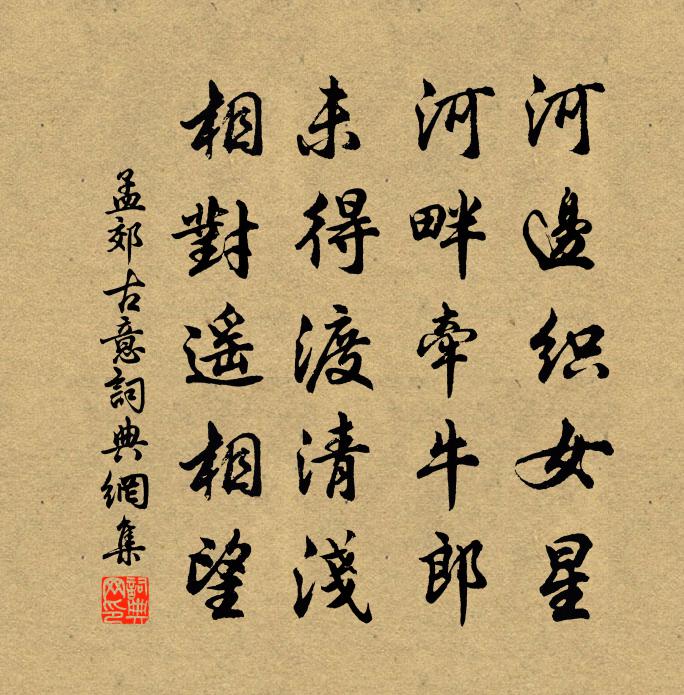 河邊织女星
河畔牽牛郎
未得渡清淺
相對遥相望
孟郊古意詞典網集
詞典网印